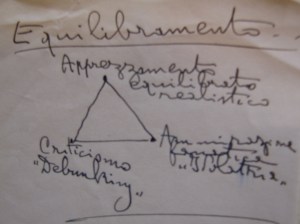 Equilibramento...
Apprezzamento
equilibrato
realistico
Criticismo
"Debunking"
Ammirazione
fanatica